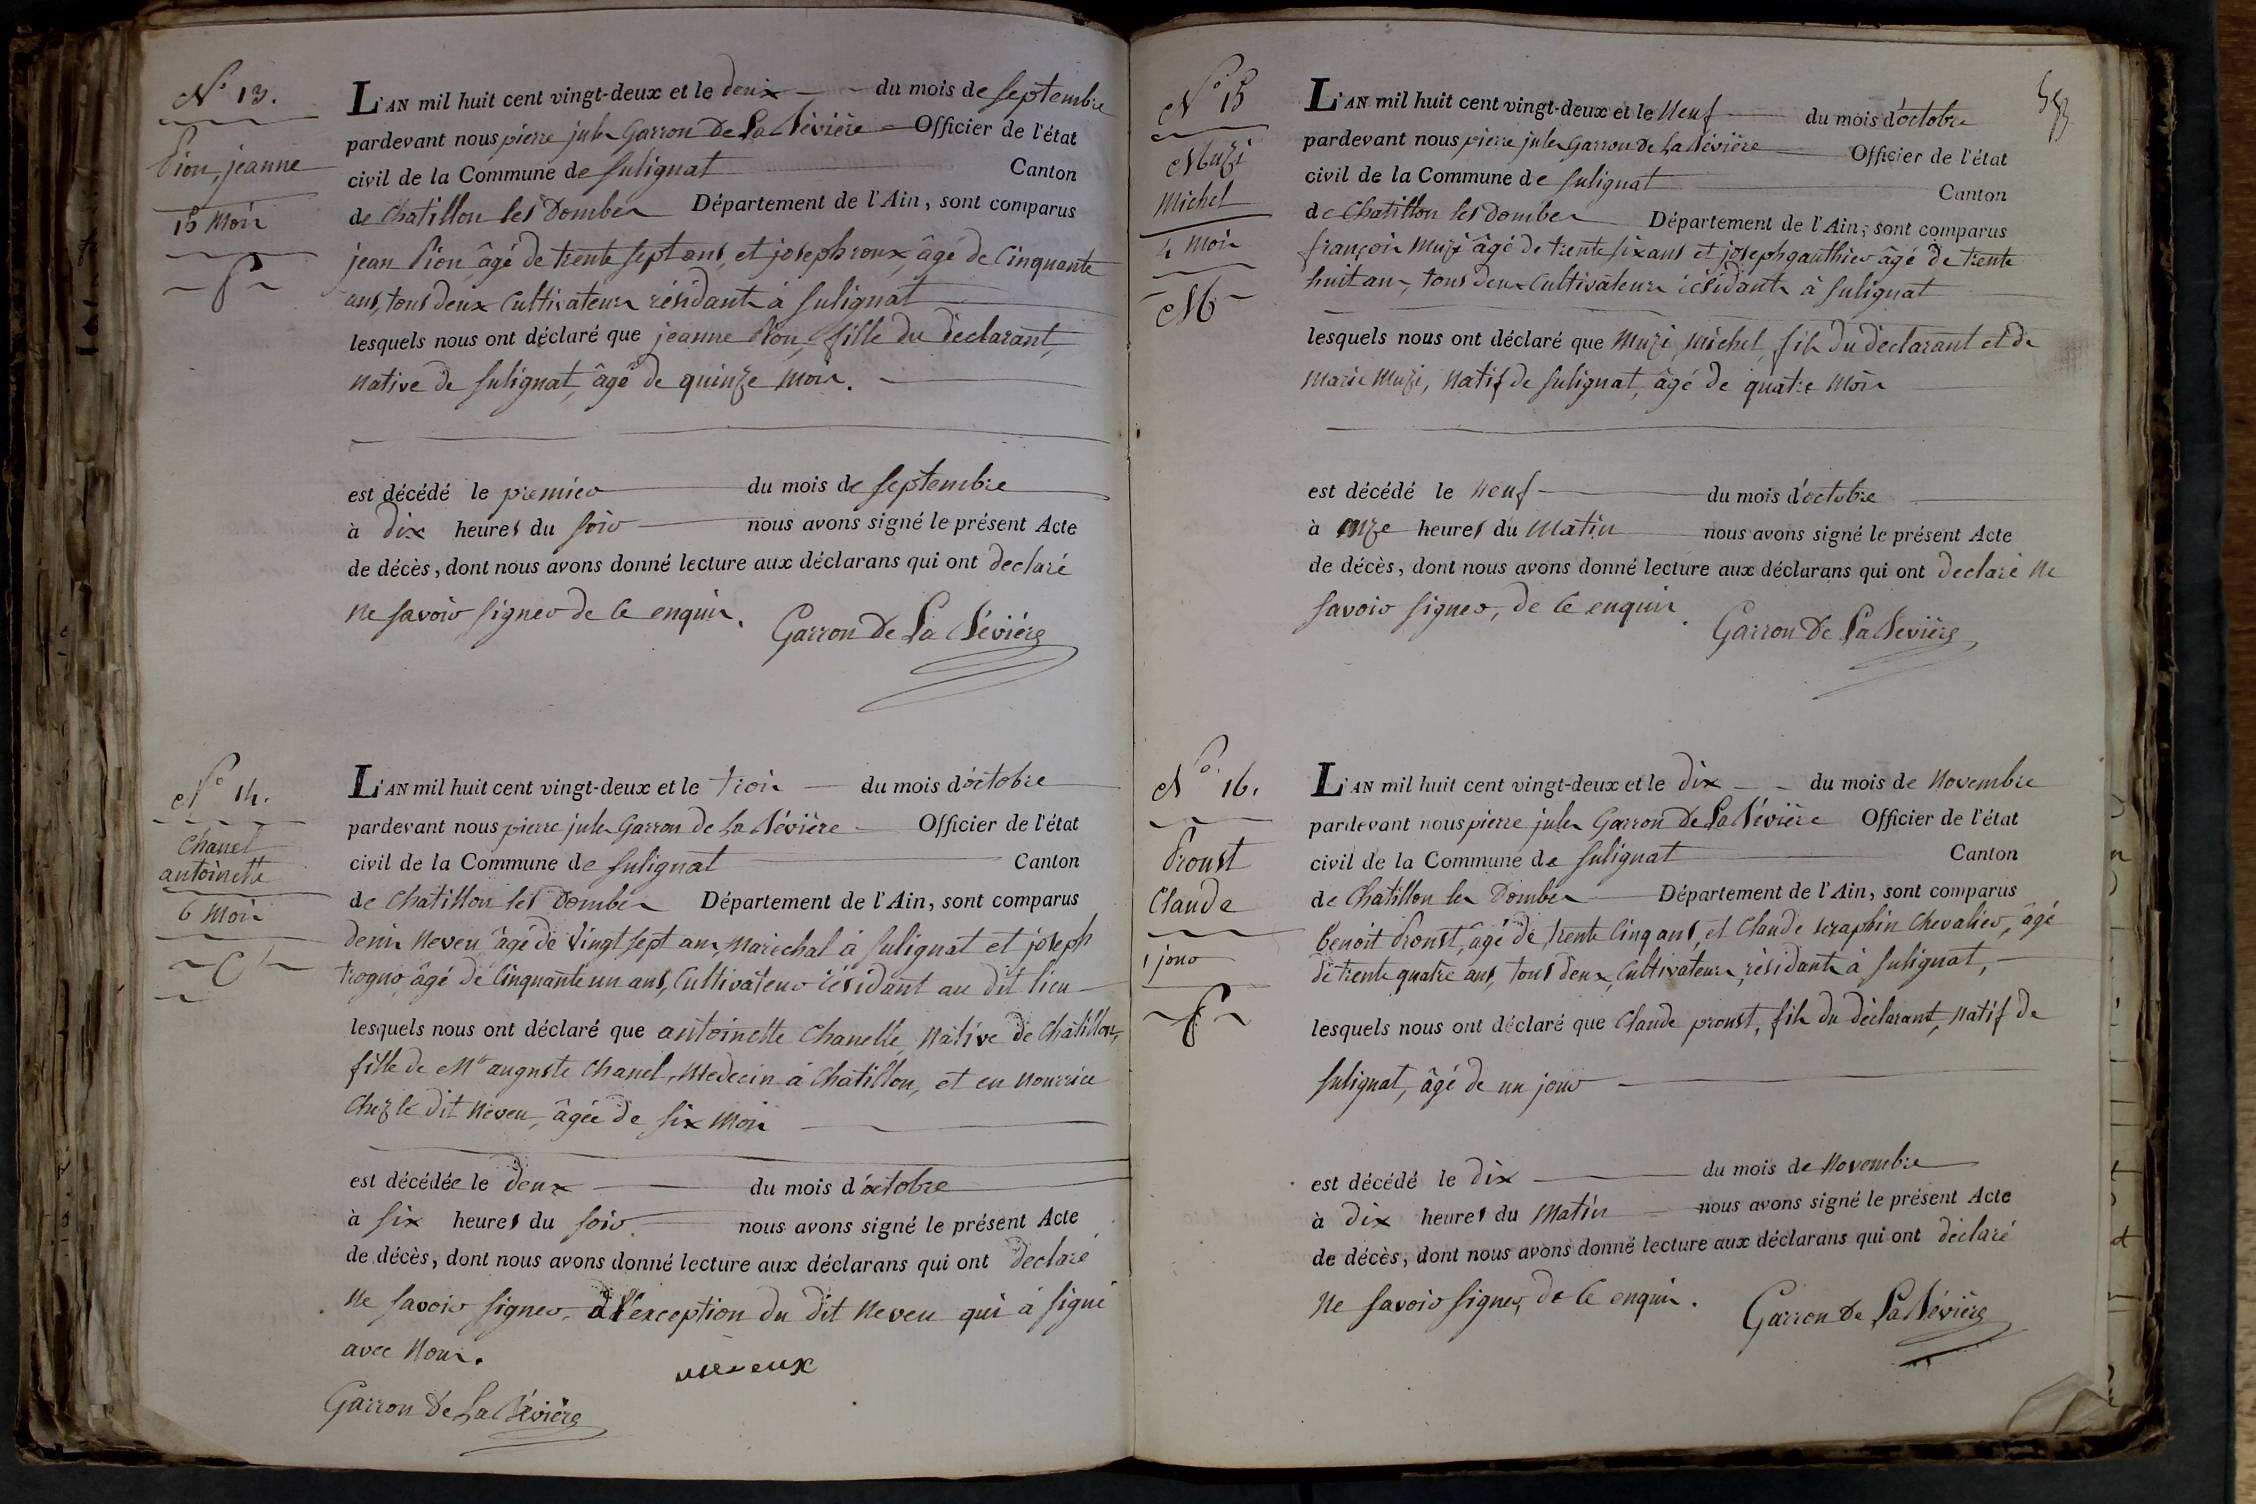 N° 13.
Pion, jeanne
15 mois
P
L'AN mil huit cent vingt-deux et le deux du mois de septembre
pardevant nous pierre jules Garron De La Bévière Officier de l'état
civil de la Commune de sulignat Canton
de Chatillon les Dombes Département de l'Ain, sont comparus
jean Pion âgé de trente sept ans, et joseph roux, âgé de Cinquante
ans, tous deux Cultivateurs résidants à sulignat
lesquels nous ont déclaré que jeanne Pion, fille du déclarant,
native de sulignat, âgé de quinze mois.
est décédé le premier du mois de septembre
à dix heures du soir nous avons signé le présent Acte
de décès, dont nous avons donné lecture aux déclarans qui ont declaré
ne savoir signer de ce enquis.
Garron De La Bévière
N° 14.
Chanel
antoinette
6 mois
C
L'AN mil huit cent vingt-deux et le trois du mois d'octobre
pardevant nous pierre jules Garron de La Bévière Officier de l'état
civil de la Commune de sulignat Canton
de Chatillon les Dombes Département de l'Ain, sont comparus
denis Neveu âgé de vingt sept ans, marechal à sulignat et joseph
trogno, âgé de Cinquante un ans, Cultivateur résidant au dit lieu
lesquels nous ont déclaré que antoinette Chanelle, Native de Châtillon,
fille de Mr auguste Chanel, Medecin à Chatillon, et en nourrice
chez le dit Neveu, âgée de six mois
est décédée le deux du mois d'octobre
à six heures du soir nous avons signé le présent Acte
de décès, dont nous avons donné lecture aux déclarans qui ont declaré
ne savoir signer, à l'exception du dit Neveu qui à signé
avec Nous.
Garron De La Bévière
N° 15
Muzi
Michel
4 mois
M
L'AN mil huit cent vingt-deux et le neuf du mois d'octobre
pardevant nous pierre jules Garron de La Bévière Officier de l'état
civil de la Commune de sulignat Canton
de Chatillon les Dombes Département de l'Ain, sont comparus
françois muzi âgé de trente six ans et joseph gauthier âgé de trente
huit ans, tous deux Cultivateurs résidants à sulignat
lesquels nous ont déclaré que muzi, michel, fils du déclarant et de
marie muzi, natif de sulignat, âgé de quatre mois
est décédé le neuf du mois d'octobre
à onze heures du matin nous avons signé le présent Acte
de décès, dont nous avons donné lecture aux déclarans qui ont declaré ne
savoir signer, de ce enquis.
Garron De La Bévière
N° 16.
Proust
Claude
1 jour
P
L'AN mil huit cent vingt-deux et le dix du mois de Novembre
pardevant nous pierre jules Garron De La Bévière Officier de l'état
civil de la Commune de sulignat Canton
de Chatillon les Dombes Département de l'Ain, sont comparus
benoit Proust, âgé de trente Cinq ans, et Claude seraphin Chevalier, âgé
de trente quatre ans, tous deux Cultivateurs, résidants à sulignat,
lesquels nous ont déclaré que Claude proust, fils du déclarant, natif de
sulignat, âgé de un jour
est décédé le dix du mois de Novembre
à dix heures du matin nous avons signé le présent Acte
de décès, dont nous avons donné lecture aux déclarans qui ont déclaré
ne savoir signer, de ce enquis.
Garron De La Bévière